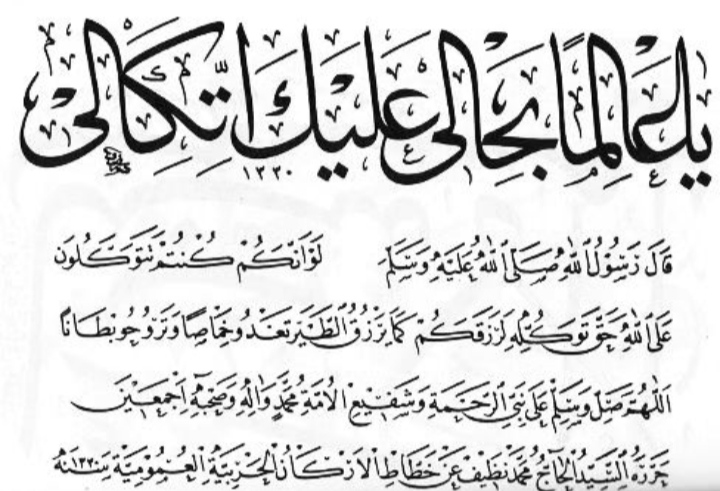 يا عالمًا بحالى عليك اتّكالى
١٣٣٠
قَالَ رَسُولُ اللهِ صَلَّى اللهُ عَلَيْهِ وَسَلَّمَ لَوْ أَنَّكُمْ كُنْتُمْ تَتَوَكَّلُونَ
عَلَى اللهِ حَقَّ تَوَكُّلِهِ لَرَزَقَكُمْ كَمَا يَرْزُقُ الطَّيْرَ تَغْدُو خِمَاصًا وَتَرُوحُ بِطَانًا
اَللّٰهُمَّ صَلِّ وَسَلِّمْ عَلَى نَبِيِّ الرَّحْمَةِ وَشَفِيعِ الْاُمَّةِ مُحَمَّدٍ وَاٰلِهِ وَصَحْبِهِ اَجْمَعِينَ
حَرَّرَهُ السَّيِّدُ الْحَاجُّ مُحَمَّدْ نَظِيفْ عَنْ خَطَّاطِ الْاَرْكَانِ الْحَرْبِيَّةِ الْعُمُومِيَّةِ سَنَه ١٣٣٠